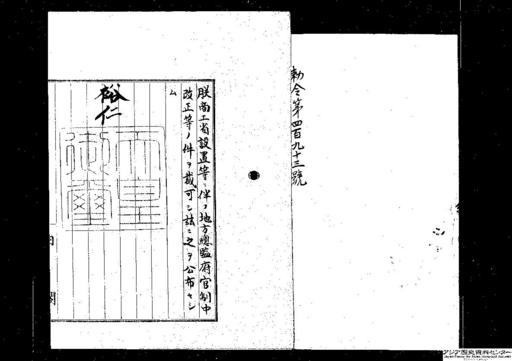 勅令第四百九十三號
朕商工省設置等ニ伴フ地方總監府官制中
改正等ノ件ヲ裁可シ茲ニ之ヲ公布セシ
ム
裕仁
天皇御璽
内
閣
アジア歴史資料センター